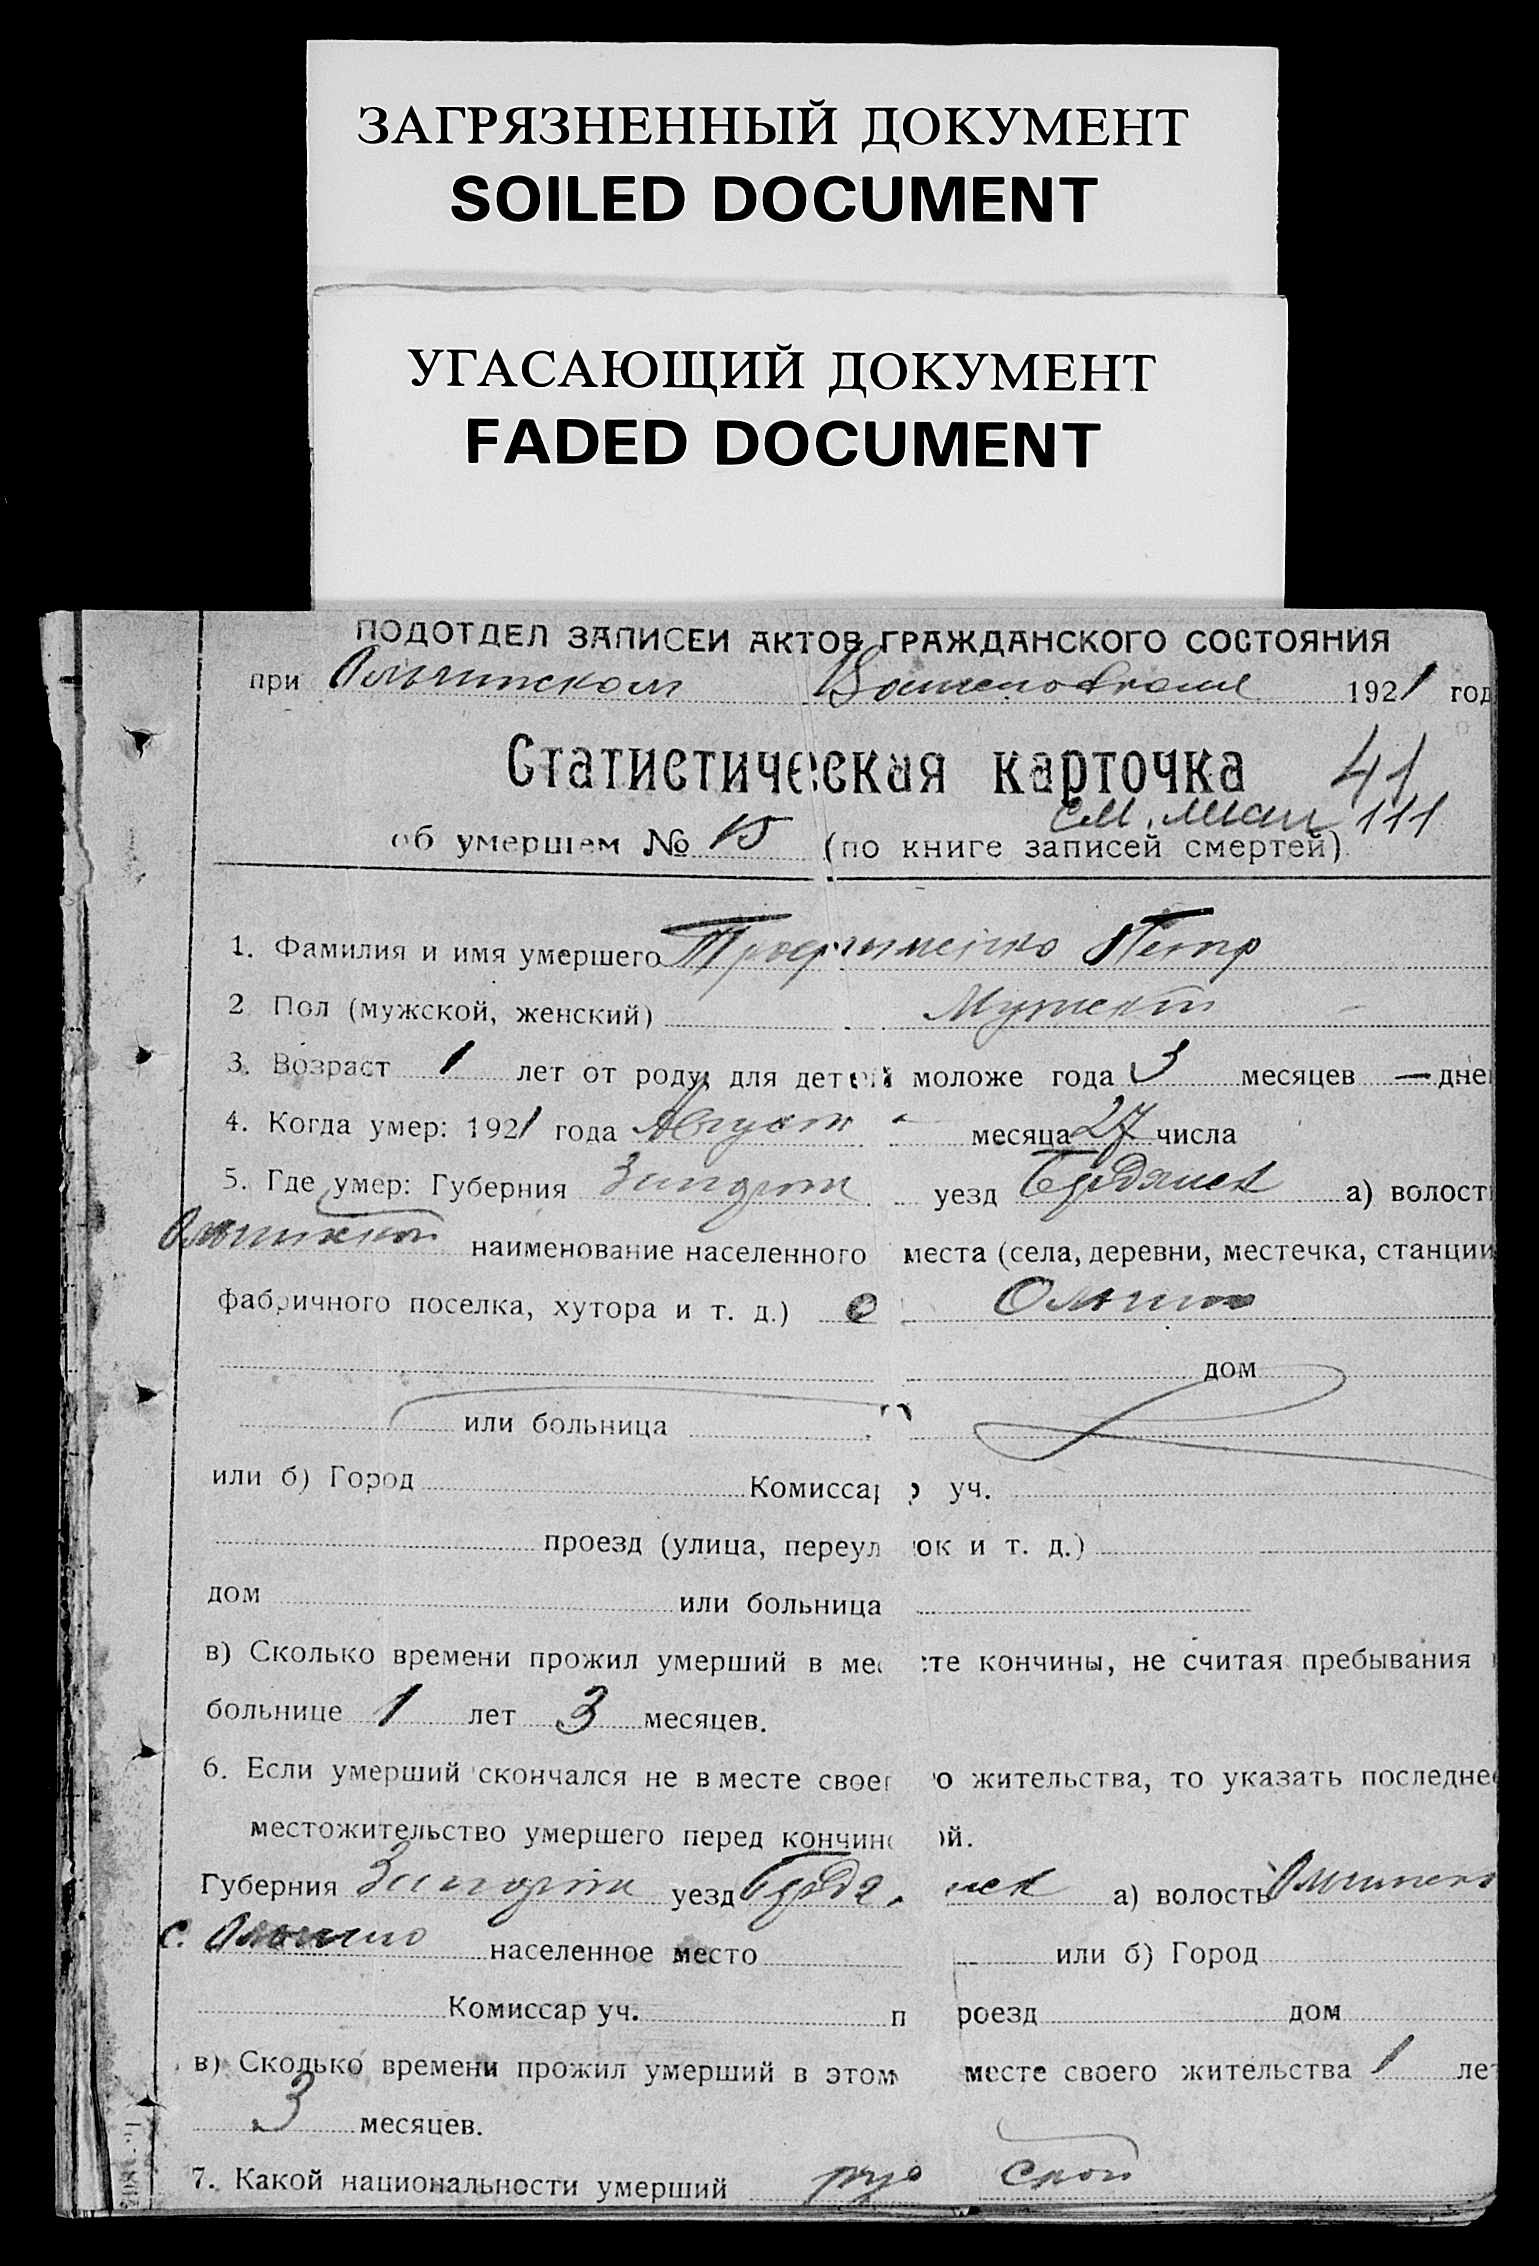 ЗАГРЯЗНЕННЫЙ ДОКУМЕНТ
SOILED DOCUMENT
УГАСАЮЩИЙ ДОКУМЕНТ
FADED DOCUMENT
ПОДОТДЕЛ ЗАПИСЕЙ АКТОВ ГРАЖДАНСКОГО СОСТОЯНИЯ
при Ольгинском 1921 год
Статистическая карточка 41
см. 111
об умершем № 15 (по книге записей смертей)
1. Фамилия и имя умершего Трофименко Петр
2 Пол (мужской, женский)
3. Возраст 1 лет от роду; для детей моложе года 3 месяцев — дне
4. Когда умер: 1921 года Август месяца 27 числа
5. Где умер: Губерния Запорож уезд Бердянск а) волост
Ольгинской наименование населенного места (села, деревни, местечка, станции
фабричного поселка, хутора и т. д.) с Ольгино
дом
или больница
или б) Город Комиссар уч.
проезд (улица, переулок и т. д.)
дом или больница
в) Сколько времени прожил умерший в месте кончины, не считая пребывания
больнице 1 лет 3 месяцев.
6. Если умерший скончался не в месте своего жительства, то указать последнее
местожительство умершего перед кончиной.
Губерния Запорож уезд Бердянск а) волость Ольгинско
с. Ольгино населенное место или б) Город
Комиссар уч. проезд дом
в) Сколько времени прожил умерший в этом месте своего жительства 1 лет
3 месяцев.
7. Какой национальности умерший русской